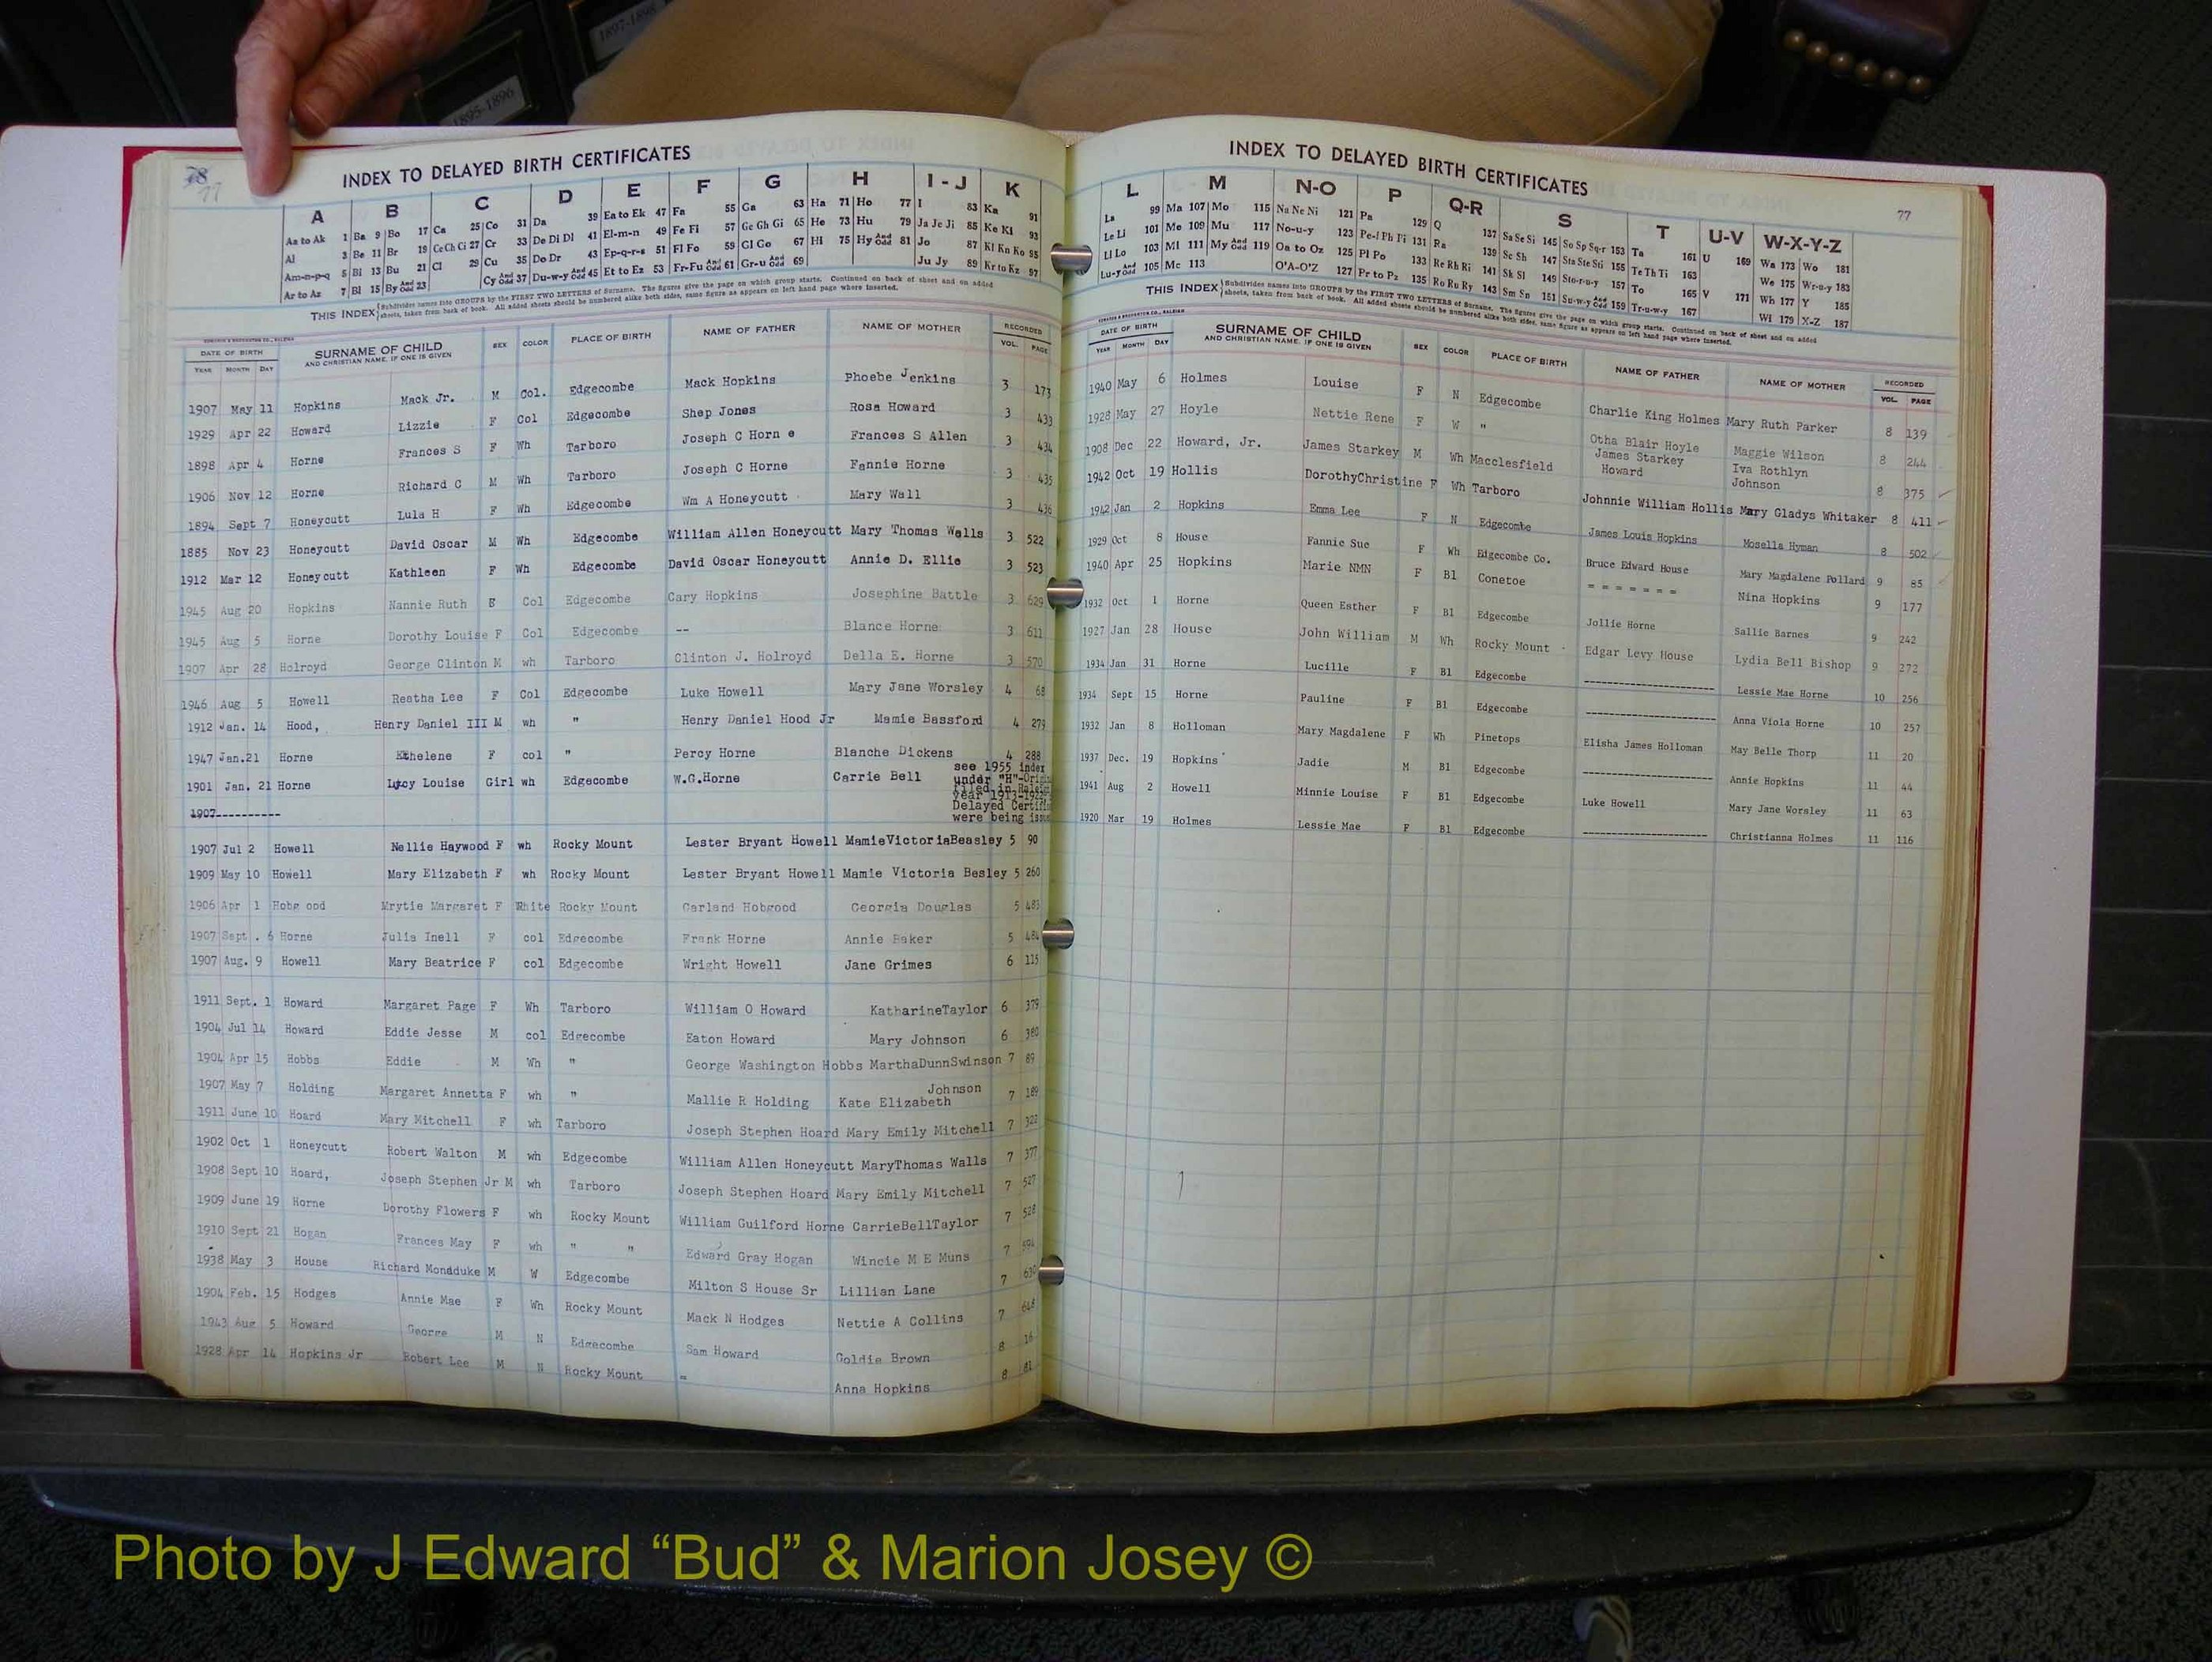 1897-1898
1895-1896
78
77
INDEX TO DELAYED BIRTH CERTIFICATES
A B C D E F G H I-J K
Aa to Ak 1 Ba 9 Bo 17 Ca 25 Co 31 Da 39 Ea to Ek 47 Fa 55 Ga 63 Ha 71 Ho 77 I 83 Ka 91
Al 3 Be 11 Br 19 Ce Ch Ci 27 Cr 33 De Di Dl 41 El-m-n 49 Fe Fi 57 Ge Gh Gi 65 He 73 Hu 79 Ja Je Ji 85 Ke Ki 93
Am-n-p-q 5 Bi 13 Bu 21 Cl 29 Cu 35 Do Dr 43 Ep-q-r-s 51 Fl Fo 59 Gl Go 67 Hi 75 Hy And Odd 81 Jo 87 Kl Kn Ko 95
Ar to Az 7 Bl 15 By And Odd 23 Cy And Odd 37 Du-w-y And Odd 45 Et to Ez 53 Fr-Fu And Odd 61 Gr-u And Odd 69 Ju Jy 89 Kr to Kz 97
THIS INDEX Subdivides names into GROUPS by the FIRST TWO LETTERS of Surname. The figures give the page on which group starts. Continued on back of sheet and on added
sheets, taken from back of book. All added sheets should be numbered alike both sides, same figure as appears on left hand page where inserted.
DATE OF BIRTH SURNAME OF CHILD SEX COLOR PLACE OF BIRTH NAME OF FATHER NAME OF MOTHER RECORDED
YEAR MONTH DAY AND CHRISTIAN NAME, IF ONE IS GIVEN VOL. PAGE
1907 May 11 Hopkins Mack Jr. M Col. Edgecombe Mack Hopkins Phoebe Jenkins 3 173
1929 Apr 22 Howard Lizzie F Col Edgecombe Shep Jones Rosa Howard 3 433
1898 Apr 4 Horne Frances S F Wh Tarboro Joseph C Horn e Frances S Allen 3 434
1906 Nov 12 Horne Richard C M Wh Tarboro Joseph C Horne Fannie Horne 3 435
1894 Sept 7 Honeycutt Lula H F Wh Edgecombe Wm A Honeycutt Mary Wall 3 436
1885 Nov 23 Honeycutt David Oscar M Wh Edgecombe William Allen Honeycutt Mary Thomas Walls 3 522
1912 Mar 12 Honeycutt Kathleen F Wh Edgecombe David Oscar Honeycutt Annie D. Ellis 3 523
1945 Aug 20 Hopkins Nannie Ruth F Col Edgecombe Cary Hopkins Josephine Battle 3 629
1945 Aug 5 Horne Dorothy Louise F Col Edgecombe -- Blance Horne 3 611
1907 Apr 28 Holroyd George Clinton M wh Tarboro Clinton J. Holroyd Della E. Horne 3 570
1946 Aug 5 Howell Reatha Lee F Col Edgecombe Luke Howell Mary Jane Worsley 4 68
1912 Jan. 14 Hood, Henry Daniel III M wh " Henry Daniel Hood Jr Mamie Bassford 4 279
1947 Jan.21 Horne Ethelene F col " Percy Horne Blanche Dickens 4 288
1901 Jan. 21 Horne Lucy Louise Girl wh Edgecombe W.G.Horne Carrie Bell see 1955 index
under "H"-Origin
filed in Raleigh
year 1913-1922
1907----------- Delayed Certific
were being issu
1907 Jul 2 Howell Nellie Haywood F wh Rocky Mount Lester Bryant Howell MamieVictoriaBeasley 5 90
1909 May 10 Howell Mary Elizabeth F wh Rocky Mount Lester Bryant Howell Mamie Victoria Besley 5 260
1906 Apr 1 Hobg ood Mrytie Margaret F White Rocky Mount Garland Hobgood Georgia Douglas 5 483
1907 Sept . 6 Horne Julia Inell F col Edgecombe Frank Horne Annie Baker 5 484
1907 Aug. 9 Howell Mary Beatrice F col Edgecombe Wright Howell Jane Grimes 6 115
1911 Sept. 1 Howard Margaret Page F Wh Tarboro William O Howard KatharineTaylor 6 379
1904 Jul 14 Howard Eddie Jesse M col Edgecombe Eaton Howard Mary Johnson 6 380
1904 Apr 15 Hobbs Eddie M Wh " George Washington Hobbs MarthaDunnSwinson 7 89
1907 May 7 Holding Margaret Annetta F wh " Mallie R Holding Kate Elizabeth Johnson 7 189
1911 June 10 Hoard Mary Mitchell F wh Tarboro Joseph Stephen Hoard Mary Emily Mitchell 7 322
1902 Oct 1 Honeycutt Robert Walton M wh Edgecombe William Allen Honeycutt MaryThomas Walls 7 377
1908 Sept 10 Hoard, Joseph Stephen Jr M wh Tarboro Joseph Stephen Hoard Mary Emily Mitchell 7 527
1909 June 19 Horne Dorothy Flowers F wh Rocky Mount William Guilford Horne CarrieBellTaylor 7 528
1910 Sept 21 Hogan Frances May F wh " " Edward Gray Hogan Wincie M E Muns 7 594
1938 May 3 House Richard Mondduke M W Edgecombe Milton S House Sr Lillian Lane 7 630
1904 Feb. 15 Hodges Annie Mae F Wh Rocky Mount Mack N Hodges Nettie A Collins 7 648
1943 Aug 5 Howard George M N Edgecombe Sam Howard Goldie Brown 8 16
1928 Apr 14 Hopkins Jr Robert Lee M N Rocky Mount = Anna Hopkins 8 81
INDEX TO DELAYED BIRTH CERTIFICATES
77
L M N-O P Q-R S T U-V W-X-Y-Z
La 99 Ma 107 Mo 115 Na Ne Ni 121 Pa 129 Q 137 Sa Se Si 145 So Sp Sq-r 153 Ta 161 U 169 Wa 173 Wo 181
Le Li 101 Me 109 Mu 117 No-u-y 123 Pe-f Ph Pi 131 Ra 139 Sc Sh 147 Sta Ste Sti 155 Te Th Ti 163 We 175 Wr-u-y 183
Ll Lo 103 Mi 111 My And Odd 119 Oa to Oz 125 Pl Po 133 Re Rh Ri 141 Sk Sl 149 Sto-r-u-y 157 To 165 V 171 Wh 177 Y 185
Lu-y And Odd 105 Mc 113 O'A-O'Z 127 Pr to Pz 135 Ro Ru Ry 143 Sm Sn 151 Su-w-y And Odd 159 Tr-u-w-y 167 Wi 179 X-Z 187
THIS INDEX Subdivides names into GROUPS by the FIRST TWO LETTERS of Surname. The figures give the page on which group starts. Continued on back of sheet and on added
sheets, taken from back of book. All added sheets should be numbered alike both sides, same figure as appears on left hand page where inserted.
DATE OF BIRTH SURNAME OF CHILD SEX COLOR PLACE OF BIRTH NAME OF FATHER NAME OF MOTHER RECORDED
YEAR MONTH DAY AND CHRISTIAN NAME, IF ONE IS GIVEN VOL. PAGE
1940 May 6 Holmes Louise F N Edgecombe Charlie King Holmes Mary Ruth Parker 8 139
1928 May 27 Hoyle Nettie Rene F W " Otha Blair Hoyle Maggie Wilson 8 244
1908 Dec 22 Howard, Jr. James Starkey M Wh Macclesfield James Starkey Howard Iva Rothlyn Johnson 8 375
1942 Oct 19 Hollis DorothyChristine F Wh Tarboro Johnnie William Hollis Mary Gladys Whitaker 8 411
1942 Jan 2 Hopkins Emma Lee F N Edgecombe James Louis Hopkins Mosella Hyman 8 502
1929 Oct 8 House Fannie Sue F Wh Edgecombe Co. Bruce Edward House Mary Magdalene Pollard 9 85
1940 Apr 25 Hopkins Marie NMN F Bl Conetoe = = = = = = = Nina Hopkins 9 177
1932 Oct 1 Horne Queen Esther F Bl Edgecombe Jollie Horne Sallie Barnes 9 242
1927 Jan 28 House John William M Wh Rocky Mount Edgar Levy House Lydia Bell Bishop 9 272
1934 Jan 31 Horne Lucille F Bl Edgecombe -------------------- Lessie Mae Horne 10 256
1934 Sept 15 Horne Pauline F Bl Edgecombe -------------------- Anna Viola Horne 10 257
1932 Jan 8 Holloman Mary Magdalene F Wh Pinetops Elisha James Holloman May Belle Thorp 11 20
1937 Dec. 19 Hopkins Jadie M Bl Edgecombe -------------------- Annie Hopkins 11 44
1941 Aug 2 Howell Minnie Louise F Bl Edgecombe Luke Howell Mary Jane Worsley 11 63
1920 Mar 19 Holmes Lessie Mae F Bl Edgecombe -------------------- Christianna Holmes 11 116
Photo by J Edward “Bud” & Marion Josey ©